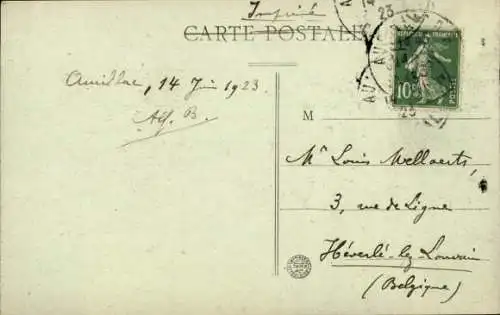 Imprimé
CARTE POSTALE
23
Aurillac, 14 Juin 1923
Alf. B.
10c
POSTES
M
Mr Louis Wellaerts,
3, rue de Ligne
Héverlé-lez-Louvain
(Belgique)